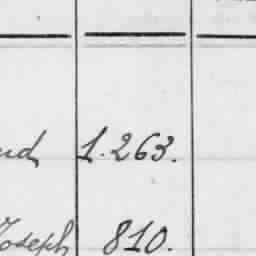 1.263.
Joseph 810.